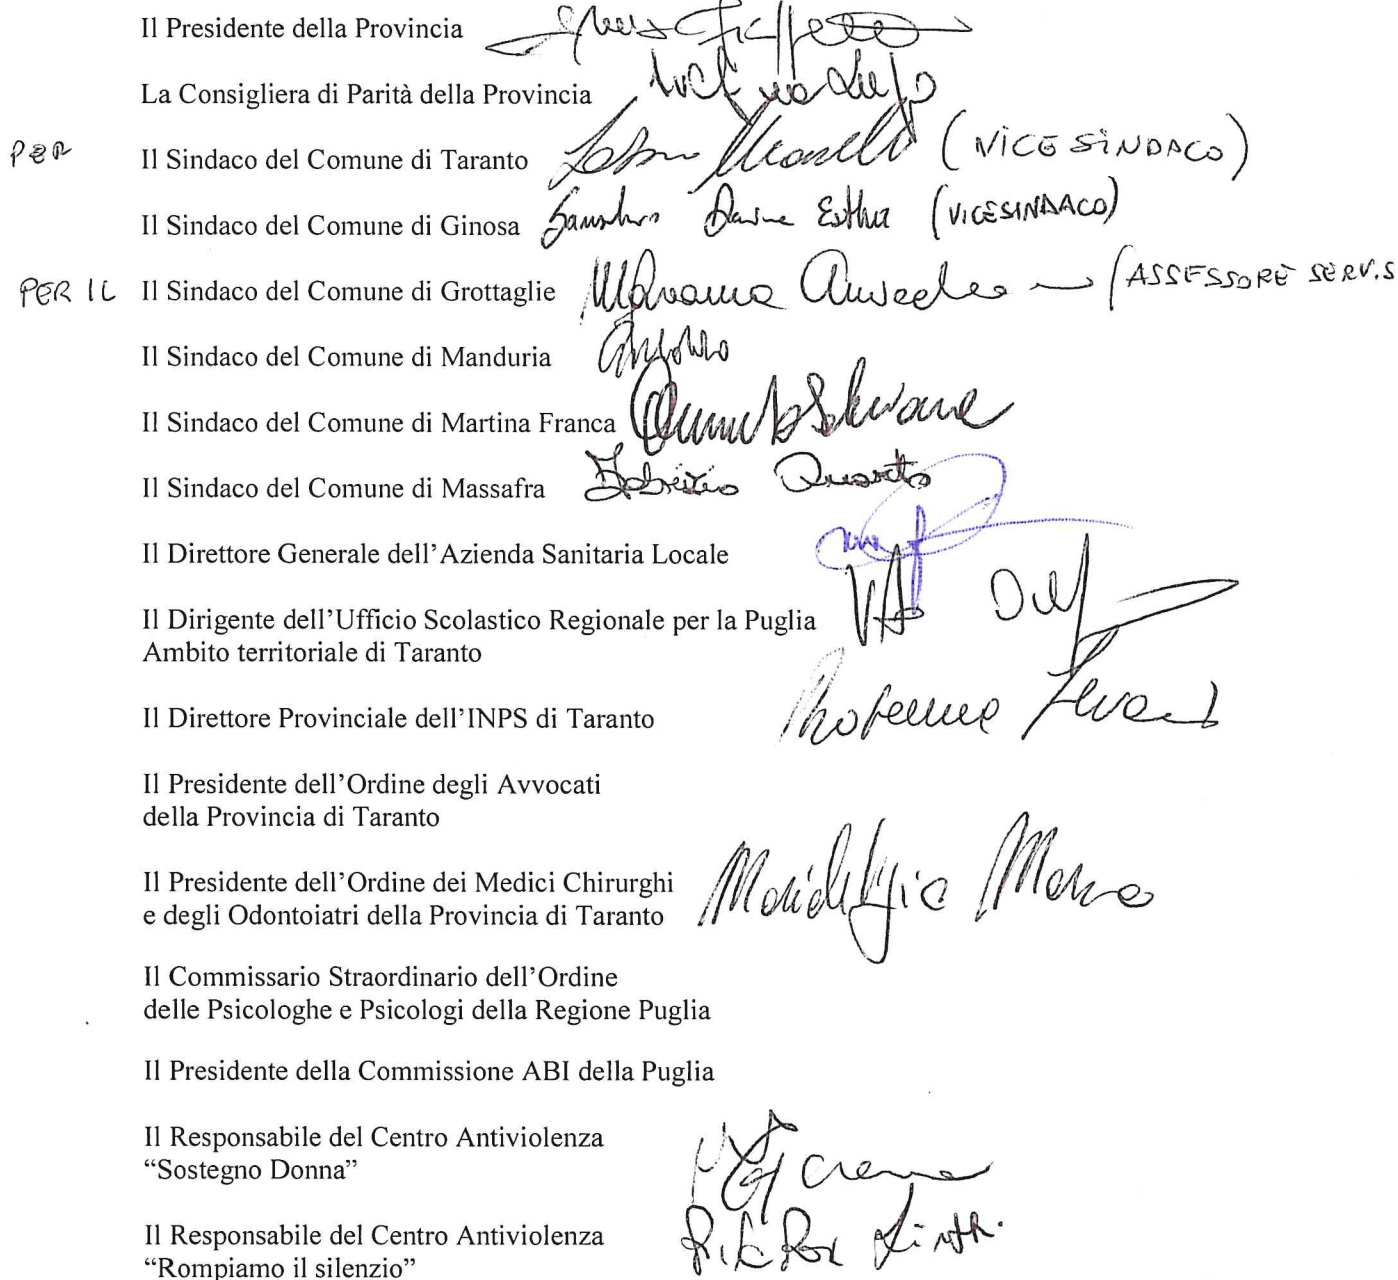 Il Presidente della Provincia
La Consigliera di Parità della Provincia
PER Il Sindaco del Comune di Taranto (VICE SINDACO)
Il Sindaco del Comune di Ginosa Esther (VICESINDACO)
PER IL Il Sindaco del Comune di Grottaglie (ASSESSORE SERV.S
Il Sindaco del Comune di Manduria
Il Sindaco del Comune di Martina Franca
Il Sindaco del Comune di Massafra Fabrizio Quarto
Il Direttore Generale dell’Azienda Sanitaria Locale
Il Dirigente dell’Ufficio Scolastico Regionale per la Puglia
Ambito territoriale di Taranto
Il Direttore Provinciale dell’INPS di Taranto
Il Presidente dell’Ordine degli Avvocati
della Provincia di Taranto
Il Presidente dell’Ordine dei Medici Chirurghi
e degli Odontoiatri della Provincia di Taranto
Il Commissario Straordinario dell’Ordine
delle Psicologhe e Psicologi della Regione Puglia
Il Presidente della Commissione ABI della Puglia
Il Responsabile del Centro Antiviolenza
“Sostegno Donna”
Il Responsabile del Centro Antiviolenza
“Rompiamo il silenzio”